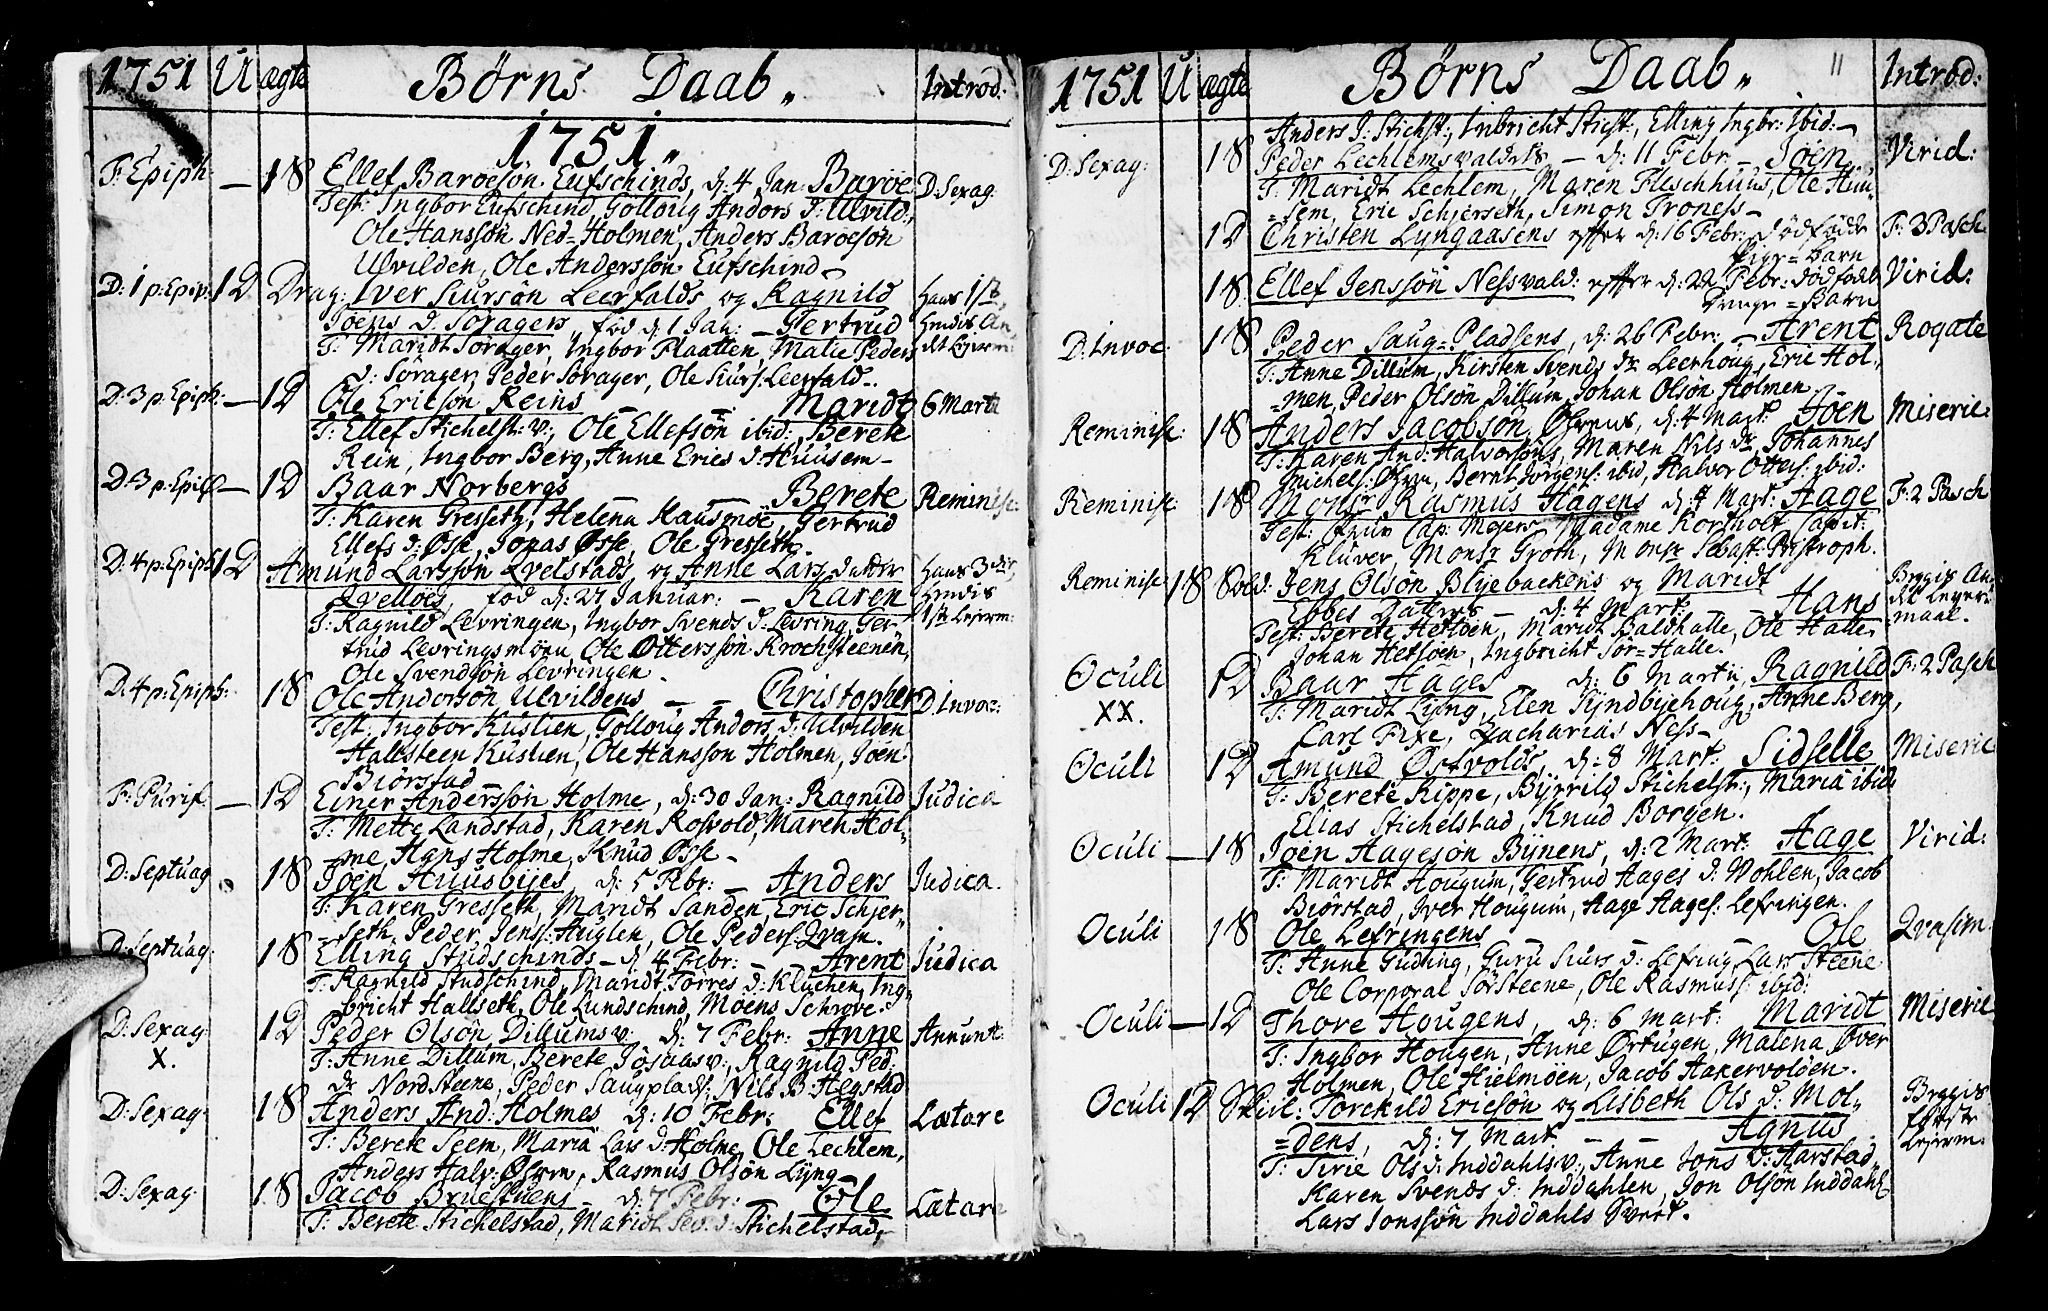 1751 U ægte Børns Daab. Introd:
1751.
F: Epiph: — 1 8 Ellef Baroesön Eufschinds, d: 4 Jan: Baroe D: Sexag:
Test: Ingbor Eufschind, Golloug Anders d: Ulvild,
Ole Hanssön Ned=Holmen, Anders Baroesön
Ulvilden, Ole Anderssön Eufschind
D: 1 p: Epip: 1 D Drag: Iver Siursön Leerfalds og Ragnild Hans 1ste
Joens d: Sorager, fød d: 1 Jan: — Gertrud Hendis An
T: Maridt Sorager, Ingbor Plaatten, Malie Peders det Lejerm:
d: Sörager, Peder Sörager, Ole Siurs: Leerfald.
D: 3 p: Epiph: — 1 D Ole Ericsön Reins — — Maridt 6 Martii
T: Ellef Stichelst: v:, Ole Ellefsön ibid:, Berete
Rein, Ingbor Berg, Anne Erics d: Huusem
D: 3 p: Epiph — 1 D Baar Norbergs — Berete Reminisc:
T: Karen Gresseth, Helena Kausmöe, Gertrud
Ellefs d: Øsse, Jonas Øsse, Ole Gresseth
D: 4 p: Epiph 1 D Amund Larssön Qvelstads og Anne Lars datter Hans 3die
Qvelloes, fød d: 27 Januar: — Karen Hendis
T: Ragnild Levringen, Ingbor Svends d: Levring, Ger= 1ste Lejerm:
trud Levringsmoen Ole Otterssön Krochsteenen,
Ole Svendsön Levringen
D: 4 p: Epiph: 1 8 Ole Andersön Ulvildens — — Christopher D: Invoc:
Test: Ingbor Kustien, Gollong Anders d: Ulvilden
Hallsteen Kustien, Ole Hansson Holmen, Joen
Biörstad
F: Purif: — 1 D Einer Anderssön Holme, d: 30 Jan: Ragnild Judica
T: Mette Landstad, Karen Rosvold, Maren Hol,
me, Hans Holme, Knud Øsse —
D: Septuag 1 8 Joen Huusbyes, d: 5 Febr: — Anders Judica.
T: Karen Gresseth, Maridt Sanden, Eric Schjer=
seth, Peder Jens: Huglen, Ole Peders: Qvasn.
D: Septuag: 1 8 Elling Studschinds — d: 4 Febr: — Arent Judica
T: Ragnild Studschind, Maridt Törres d: Kluchen, Ing,
bricht Hallseth, Ole Lundschind, Moens Schrove.
D: Sexag: 1 D Peder Olsön Dillums v: d: 7 Febr: Anne Annunt:
X. T: Anne Dillum, Berete Jösaas v:, Ragnild Ped:
dr Nordsteene, Peder Saugplads: Nils B: Hegstad
D: Sexag: 1 8 Anders And: Holmes d: 10 Febr: Ellef Lætare
T: Berete Seem, Maria Lars d: Holme, Ole Lechlem,
Anders Halv: Øhren, Rasmus Olsön Lyng
D: Sexag: 1 8 Jacob Bruestuens — d: 7 Febr: — Ole Lætare
T: Berete Stichelstad, Maridt Sev: d: Stichelstad,
1751 U ægte Børns Daab. 11 Introd:
Anders J: Stichst:, Inbricht Stichst:, Elling Ingbr: ibid: —
D: Sexag: 1 8 Peder Lechlemsvaldets — d: 11 Febr: — Joen Virid:
T: Maridt Lechlem, Maren Fleschhuus, Ole Huu=
sem, Eric Schjerseth, Simon Troness —
1 D Christen Lyngaasens efter d: 16 Febr: dødfødde F: 3 Pasch
Pige=Barn
1 8 Ellef Jenssön Nessvald: efter d: 22 Febr: dødfødt Virid:
Drenge=Barn
D: Invoc: 1 8 Peder Saug=Pladsens, d: 26 Febr: — Arent Rogate
T: Anne Dillum, Kirsten Svends dr Leerhoug, Eric Hol,
men, Peder Olsön Dillum, Johan Olsön Holmen
Reminisc: 1 8 Anders Jacobsön Øhrens, d: 4 Mart: Joen Miseric:
T: Karen And: Halvorsöns, Maren Nils dr, Johannes
Michels: Øhren, Bernt Jörgens: ibid, Halvor Otters: ibid:
Reminisc: 1 8 Monsr Rasmus Hagens d: 4 Mart: Aage F: 2 Pasch
Test: Fruw Cap: Mejers, Madame Korsholt, Capit:
Kluver, Monsr Groth, Monsr Sebast: Pystroph.
Reminisc: 1 8 Sold: Jens Olson Blyebackens og Maridt Bægges An
Ebbes Datters — d: 4 Mart: — Hans det Lejer
Test: Berete Hetloen, Maridt Baldhalle, Ole Halle, maal.
Johan Hetloen, Ingbricht Sör=Halle.
Oculi 1 D Baar Hages d: 6 Martii, Ragnild F: 2 Pasch
XX. T: Maridt Lyng, Elen Tyndbyehoug, Anne Berg,
Carl Fixe, Zacharias Ness —
Oculi 1 D Amund Østvolds, d: 8 Mart: Sidselle Miseric
T: Berete Rippe, Byrrild Stichelst:, Maria ibid
Elias Stichelstad, Knud Borgen.
Oculi — 1 8 Joen Hagesön Bynens, d: 2 Mart: Aage Virid:
T: Maridt Hougum, Gertrud Aages d: Wohlen, Jacob
Biörstad, Iver Hougum, Aage Aages: Lefringen.
Oculi 1 8 Ole Lefringens — Ole Qvasim.
T: Anne Guding, Guru Siurs d: Lefring, Lars Steene
Ole Corporal Sörsteene, Ole Rasmuss: ibid:
Oculi — 1 D Thore Hougens, d: 6 Mart: Maridt Miseric
T: Ingbor Hougen, Anne Ørtugen, Malena Över
Holmen, Ole Hielmöen, Jacob Aakervoldöen.
Oculi 1 D Skiel: Torckild Ericsön og Lisbeth Ols d: Mol, Bægges
dens, d: 7 Mart: — — Agnus første
T: Sirie Ols d: Inddahls v:, Anne Jons d: Aarstad, Lejerm.
Karen Svends d: Inddahlen, Jon Olsön Inddahl
Lars Jonssön Inddahls Svert.